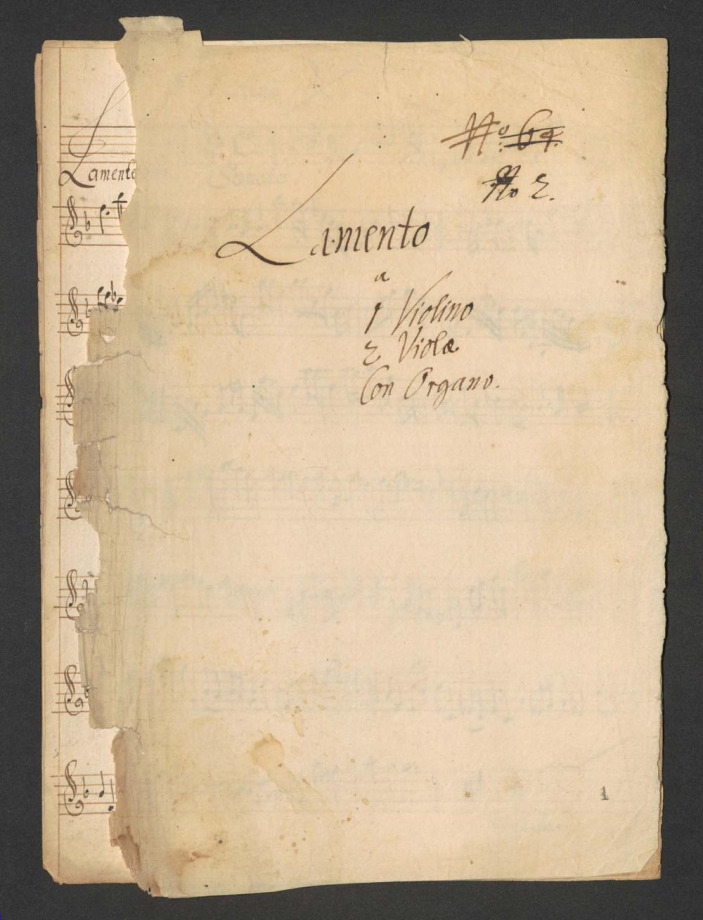 No. 69.
No 2.
Lamento
Lamento
a
1 Violino
2 Violæ
Con Organo.
1